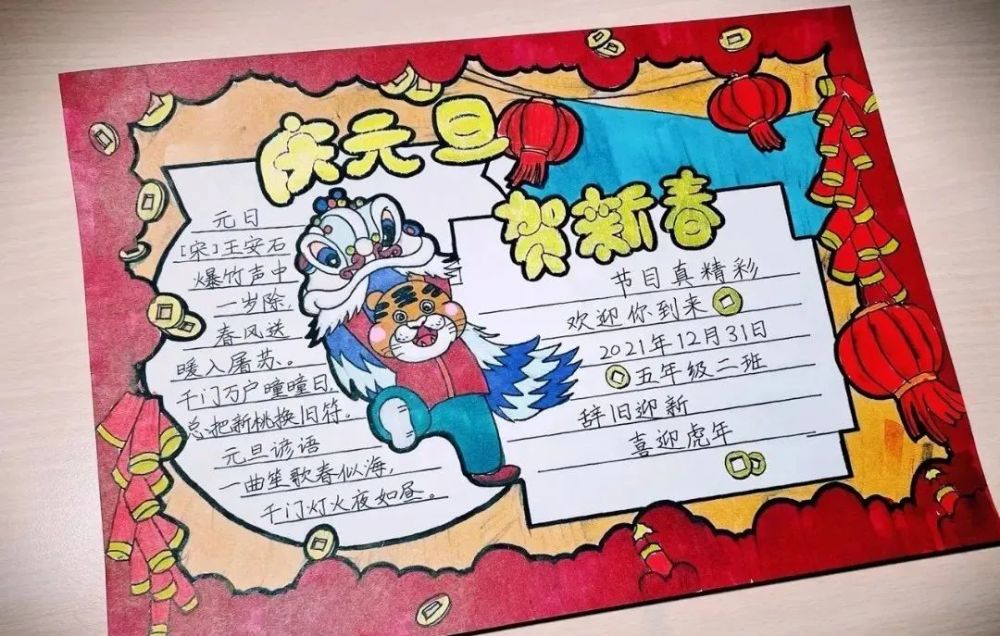 庆元旦
贺新春
元日
[宋]王安石
爆竹声中
一岁除,
春风送
暖入屠苏。
千门万户曈曈日,
总把新桃换旧符。
元旦谚语
一曲笙歌春似海,
千门灯火夜如昼。
节目真精彩
欢迎你到来
2021年12月31日
五年级二班
辞旧迎新
喜迎虎年